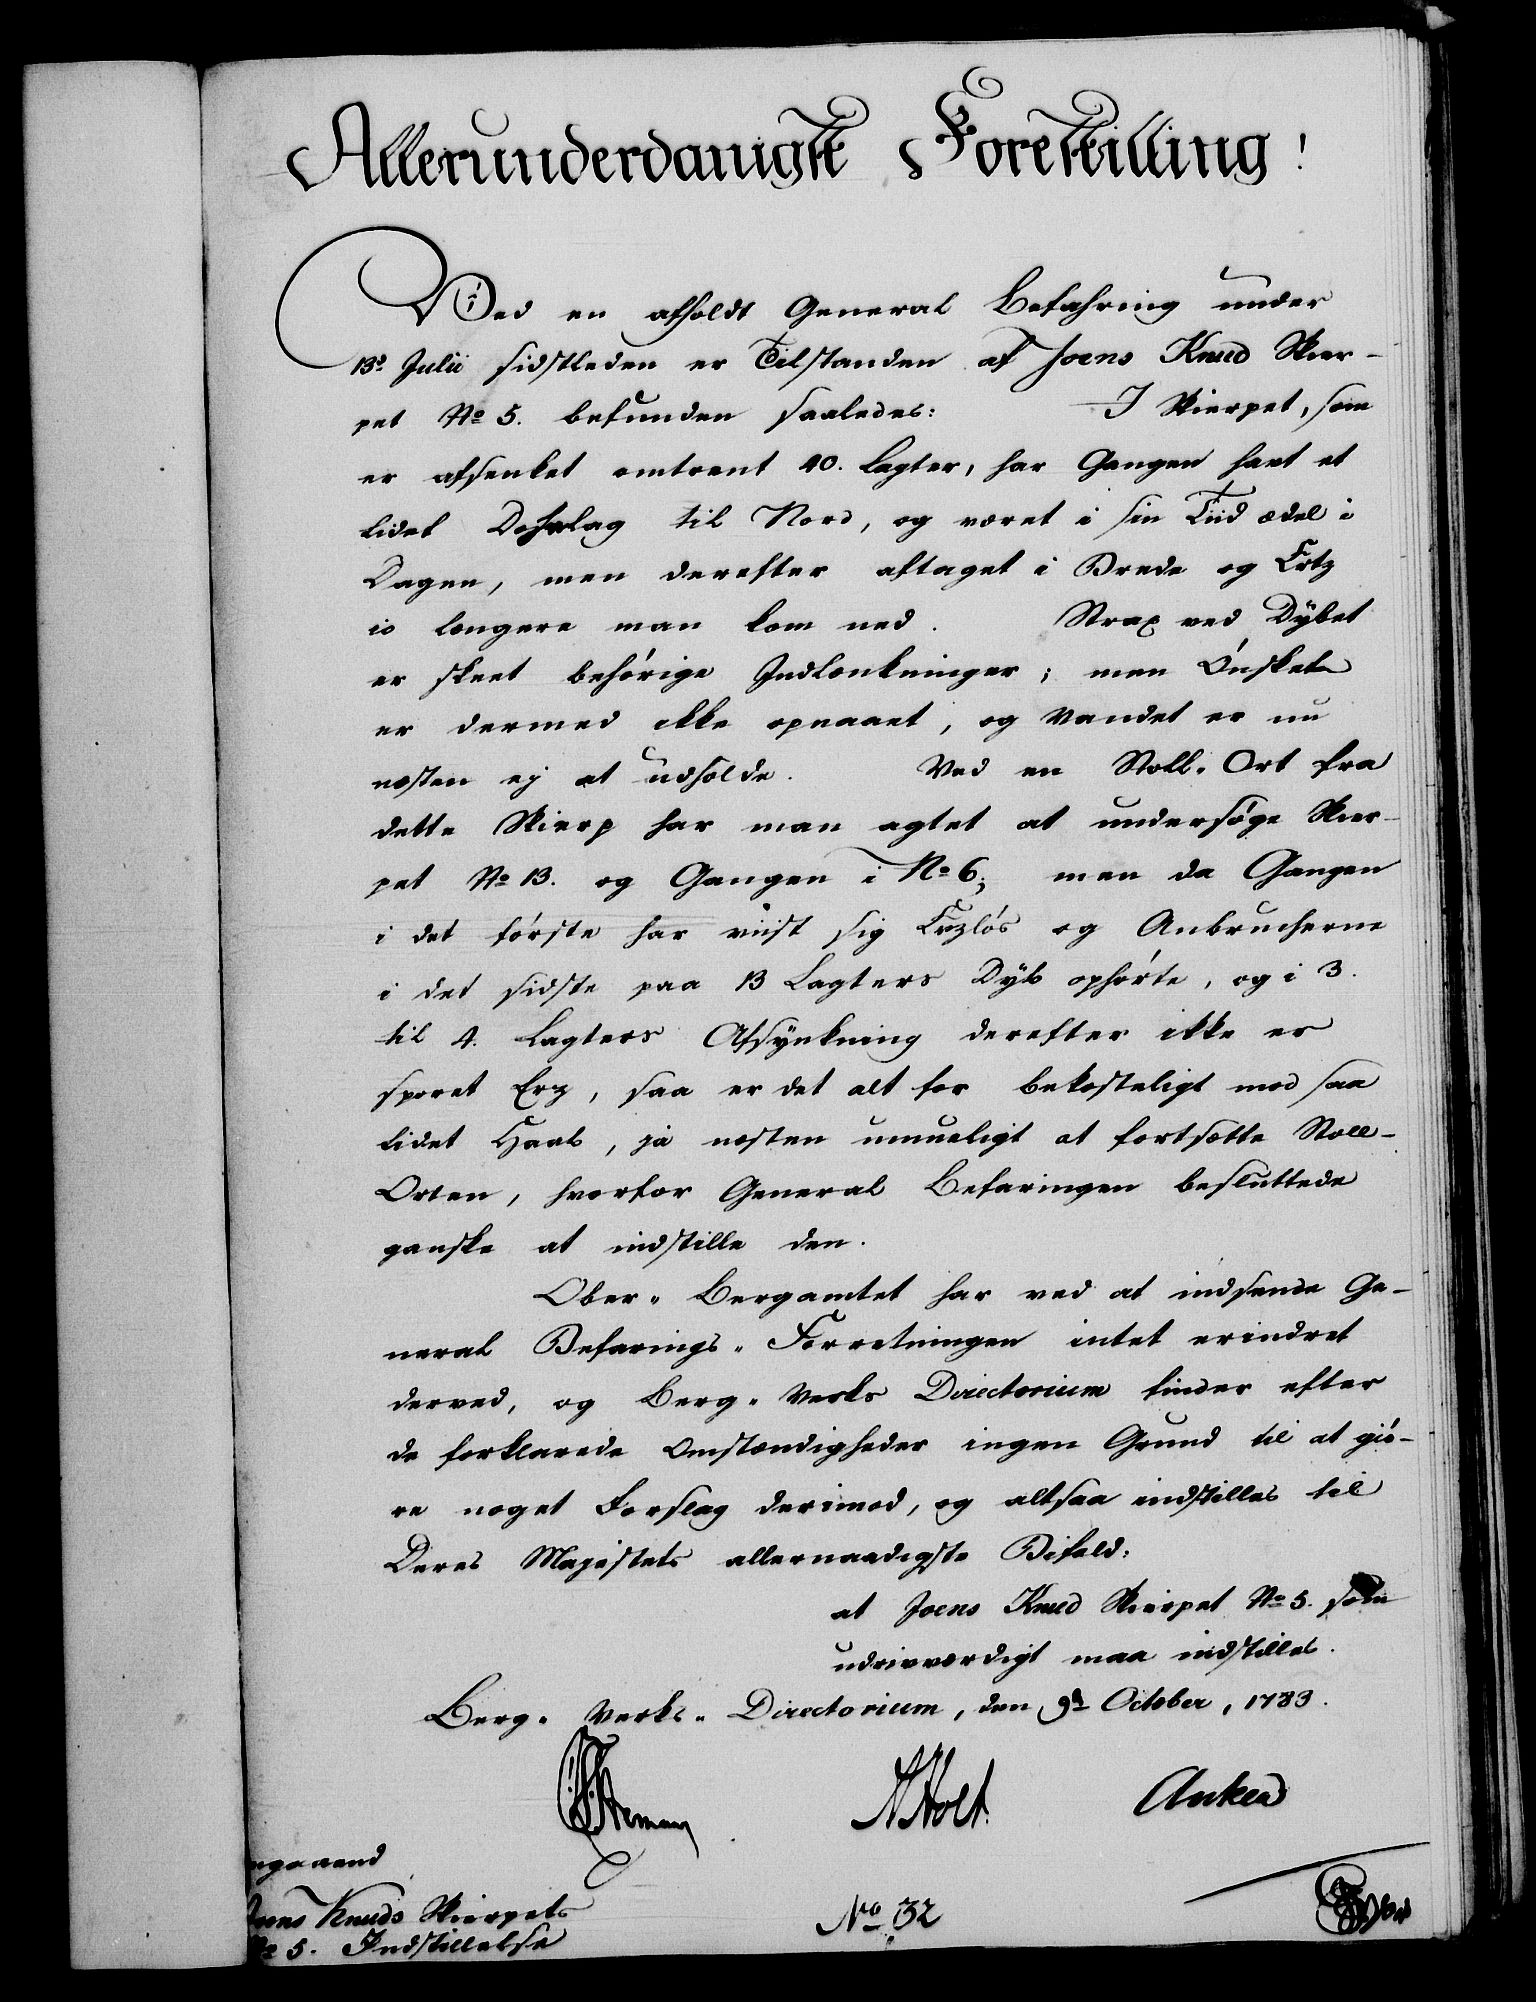 Allerunderdanigst Forestilling!
Ved en afholdt General Befahring under
13de Julii sidstleden er Tilstanden af Joens Knud Skier-
pet No 5. befunden saaledes: I Skierpet, som
er afsenket omtrent 40. Lagter, har Gangen havt et
lidet Dohnlag til Nord, og været i sin Tiid ædel i
Dagen, men derefter aftaget i Brede og Ertz
io længere man kom ned. Strax ved Dybet
er skeet behørige Indlænkninger; men Ønsket
er dermed ikke opnaaet, og Vandet er nu
næsten ej at udholde. Ved en Stoll-Ort fra
dette Skierp har man agtet at undersøge Skier-
pet No 13. og Gangen i No 6; men da Gangen
i det første har viist sig Erzløs og Anbrucherne
i det sidste paa 13 Lagters Dyb ophørte, og i 3.
til 4. Lagters Afsynkning derefter ikke er
sporet Erz, saa er det alt for bekosteligt mod saa
lidet Haab, ja næsten umueligt at fortsætte Stoll-
Orten, hvorfor General Befaringen besluttede
ganske at indstille den.
Ober-Bergamtet har ved at indsende Ge-
neral Befarings-Forretningen intet erindret
derved, og Berg-Verks Directorium finder efter
de forklarede Omstændigheder ingen Grund til at giø-
re noget Forslag derimod, og altsaa indstilles til
Deres Majestets allernaadigste Bifald:
at Joens Knud Skierpet No 5. som
udrivværdigt maa indstilles.
Berg-Verks-Directorium, den 9de October, 1783.
Stemann Holt. Anker
ngaaend
Joens Knuds Skierpets
No 5. Indstillelse
No 32